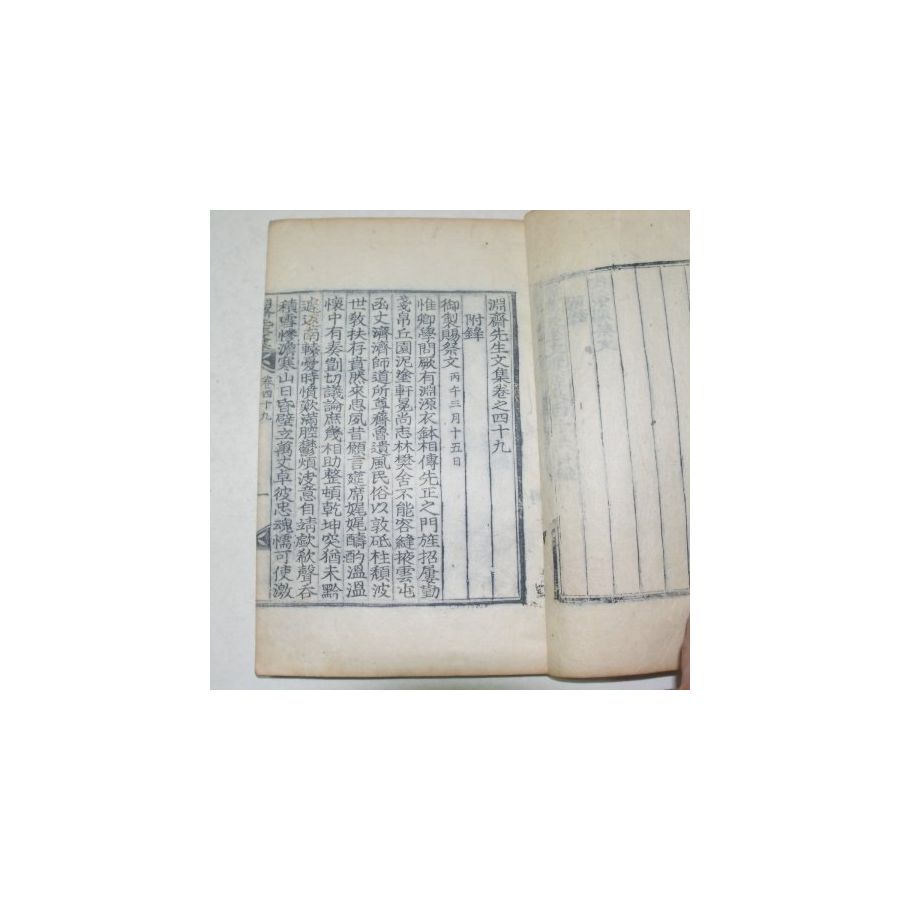 淵齋先生文集卷之四十九
附錄
御製賜祭文 丙午三月十五日
惟卿學問厥有淵源衣鉢相傳先正之門旌招屢勤
戔帛丘園泥塗軒冕尚志林樊舍不能容縫掖雲屯
函丈濟濟師道所尊齊魯遺風民俗以敦砥柱頹波
世敎扶存賁然來思夙昔願言筵席娓娓醻酌溫溫
懷中有奏剴切議論庶幾相助整頓乾坤突猶未黔
遄返南轅憂時憤歎滿腔鬱煩浚意自靖歔欷聲呑
積雪慘澹寒山日昏壁立萬丈卓彼忠魂懦可使激
卷四十九
一